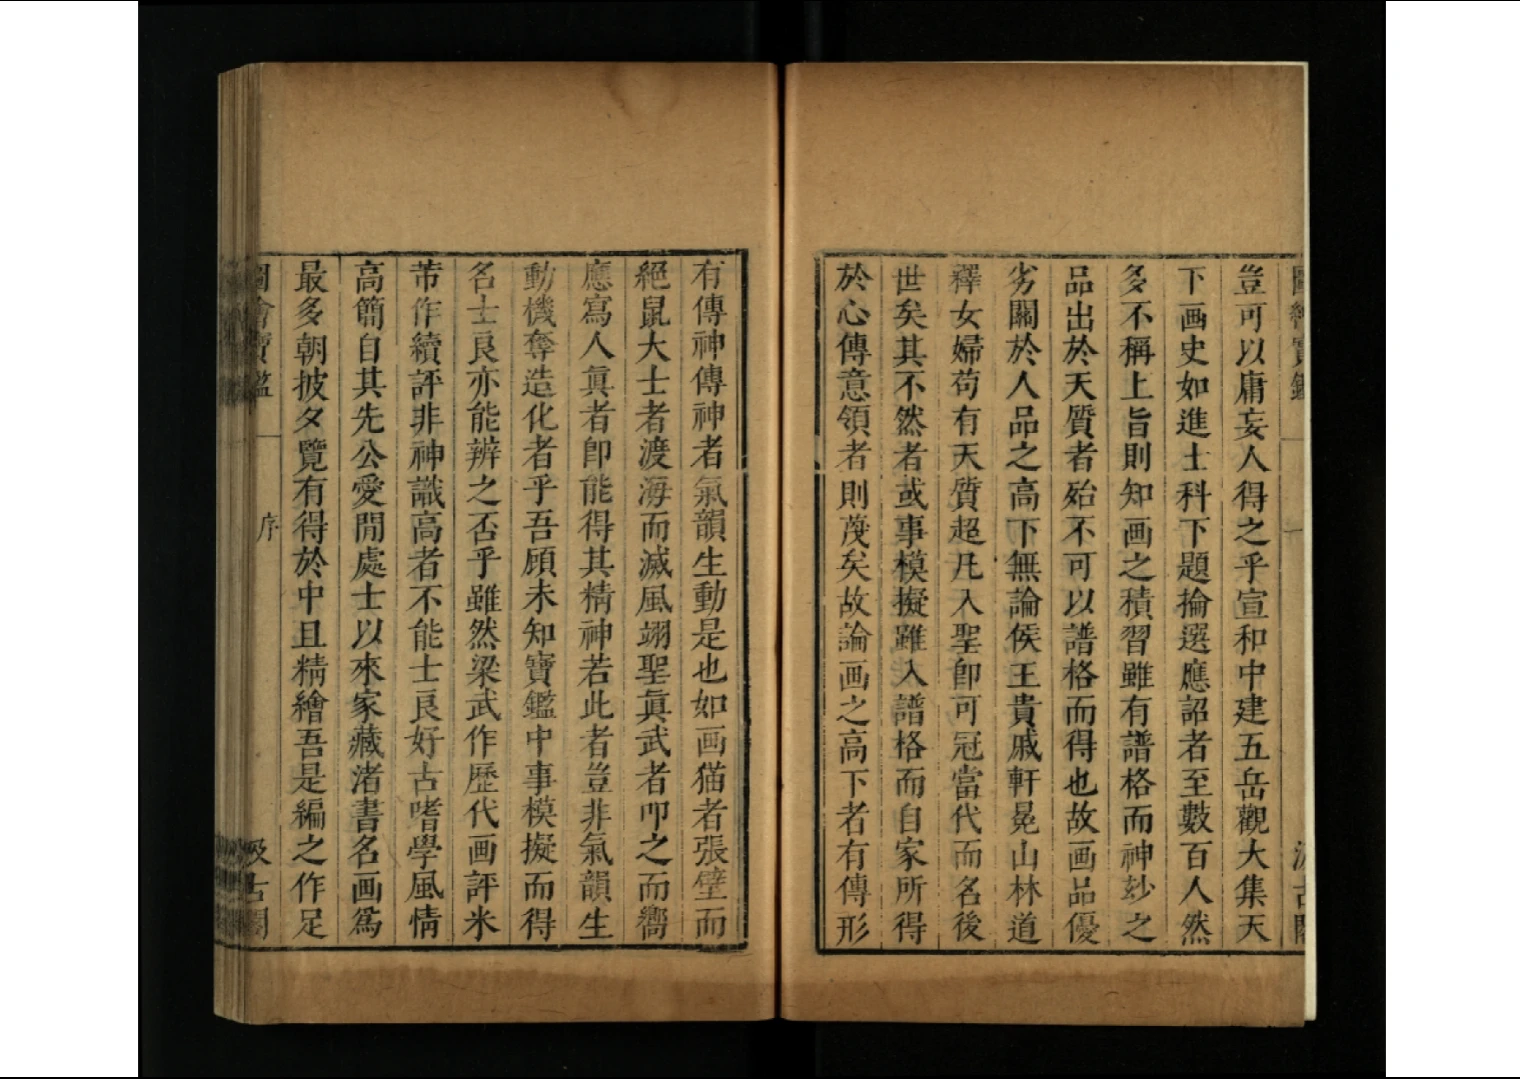 圖繪寶鑑
豈可以庸妄人得之乎宣和中建五岳觀大集天
下画史如進士科下題掄選應詔者至數百人然
多不稱上旨則知画之積習雖有譜格而神玅之
品出於天質者殆不可以譜格而得也故画品優
劣關於人品之高下無論侯王貴戚軒冕山林道
釋女婦苟有天質超凡入聖即可冠當代而名後
世矣其不然者或事模擬雖入譜格而自家所得
於心傳意領者則蔑矣故論画之高下者有傳形
有傳神傳神者氣韻生動是也如画猫者張壁而
絕鼠大士者渡海而滅風翊聖眞武者叩之而嚮
應寫人眞者卽能得其精神若此者豈非氣韻生
動機奪造化者乎吾顧未知寶鑑中事模擬而得
名士良亦能辨之否乎雖然梁武作歷代画評米
芾作續評非神識高者不能士良好古嗜學風情
高簡自其先公愛閒處士以來家藏渚書名画爲
最多朝披夕覽有得於中且精繪吾是編之作足
圖會寶鑑 序 汲古閣